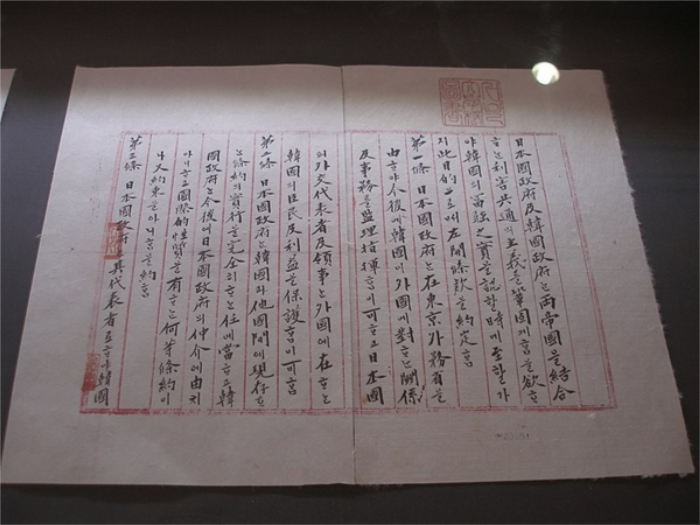 日本國政府及韓國政府는兩帝國을結合
하는利害共通의主義를鞏固케함을欲하
야韓國의富强之實을認할時에至할가
지此目的으로써左開條款을約定홈
第一條 日本國政府는在東京外務省을
由하야今後에韓國이外國에對하는關係
及事務를監理指揮홈이可하고日本國
의外交代表者及領事는外國에在하는
韓國의臣民及利益을保護홈이可홈
第二條 日本國政府는韓國과他國間에現存하
는條約의實行을完全히하는任에當하고韓
國政府는今後에日本國政府의仲介에由치
아니하고國際的性質을有하는何等條約이
나又約束을아니홈을約홈
第三條 日本國政府는其代表者로하야韓國